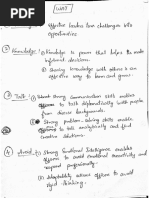 WHY
effective leaders turn challenges into
opportunities
② Knowledge :- ① Knowledge is power that helps to make
informed decisions.
② Sharing knowledge with others is an
effective way to learn and grow.
③ Tact :- strong communication skills enables
to talk diplomatically with people
from diverse backgrounds.
② Strong problem-solving skills enable
to talk analytically and find
solutions.
④ Avoid :- ① Strong Emotional Intelligence enables
officers to avoid emotional sensitivity and
respond empathetically.
② Adaptability officers to avoid
rigid thinking.